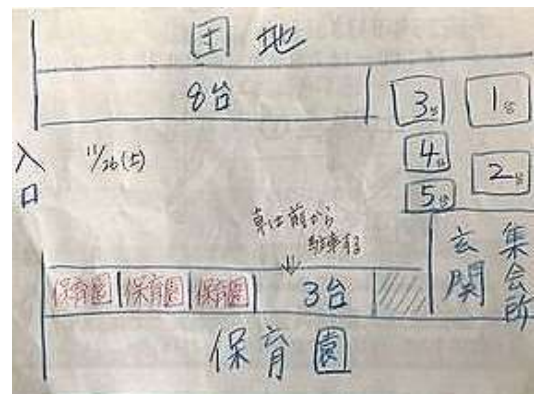 団地
8台
3台
1台
4台
2台
5台
入口
11/26(土)
車は前から
駐車する
保育園
保育園
保育園
3台
玄関
集会所
保育園